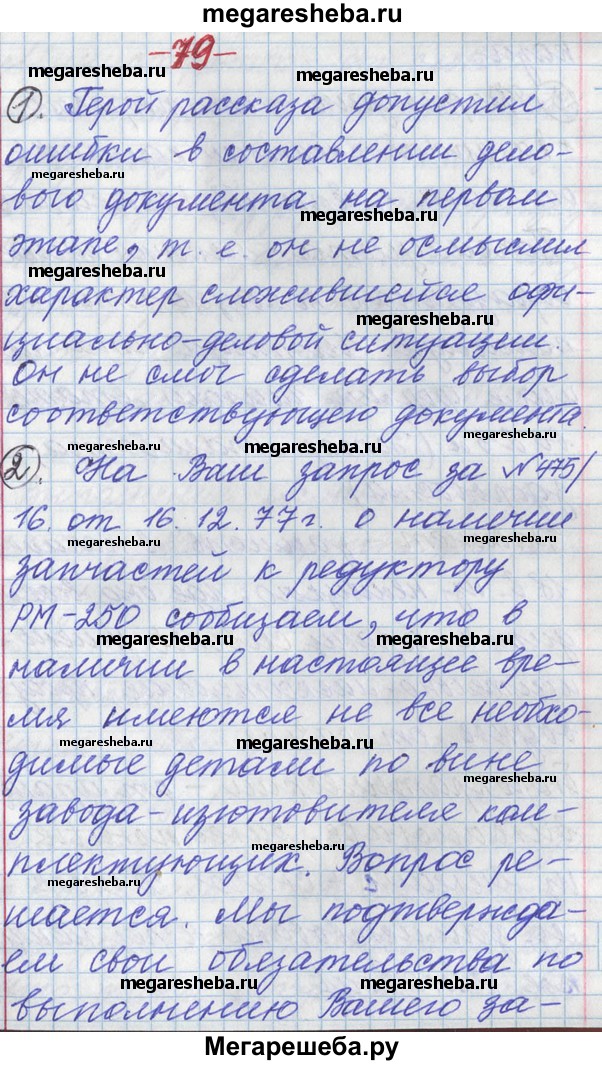 megaresheba.ru
-79-
megaresheba.ru
megaresheba.ru
1. Герой рассказа допустил
ошибки в составлении дело-
megaresheba.ru
вого документа на первом
megaresheba.ru
этапе, т. е. он не осмыслил
megaresheba.ru
характер сложившейся офи-
megaresheba.ru
циально-деловой ситуации.
Он не смог сделать выбор
соответствующего документа.
megaresheba.ru
megaresheba.ru
2. На Ваш запрос за №475/
16. от 16. 12. 77г. о наличии
megaresheba.ru
megaresheba.ru
запчастей к редуктору
РМ-250 сообщаем, что в
megaresheba.ru
megaresheba.ru
наличии в настоящее вре-
megaresheba.ru
мя имеются не все необхо-
megaresheba.ru
megaresheba.ru
димые детали по вине
завода-изготовителя ком-
megaresheba.ru
плектующих. Вопрос ре-
megaresheba.ru
шается. Мы подтвержда-
megaresheba.ru
ем свои обязательства по
megaresheba.ru
выполнению Вашего за-
Мегарешеба.ру